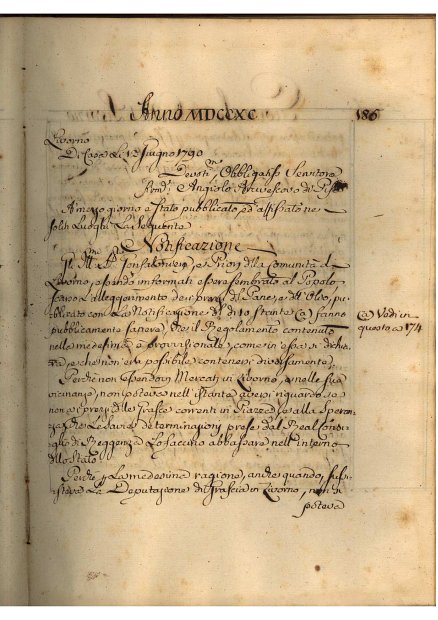 Anno MDCCXC
186
Livorno
Di Casa li 12 Giugno 1790
Devoti. Obbligatiss. Servitore
Angiolo Arcivescovo di
A mezzo giorno è stato pubblicato, ed affisso ne
soliti Luoghi La Seguente
Notificazione
Gonfaloniere, e Priori della Comunità di
Livorno, essendo informati essere sembrato al Popolo
scarso l'alleggerimento dei prezzi del Pane, e dell'Olio, pu
blicato con La Notificazione del dì 10 stante (a) fanno
pubblicamente sapere, che il Regolamento contenuto
nella medesima è provvisionale, come in essa si dichia
ra, e che non era possibile contenersi diversamente.
Perché non essendovi Mercati in Livorno, e nelle sue
vicinanze, non poteva nell'istante aversi riguardo se
non a prezzi delle Grasce correnti in Piazza, e alla Speran
za che Le Savie determinazioni prese dal Real Consi
glio di Reggenza Lo facciano abbassare nell'interno
dello Stato
Perché La medesima ragione, anche quando sussi
steva La Deputazione di Grascia in Livorno, non si
poteva
(a) Vedi in
questo a 174